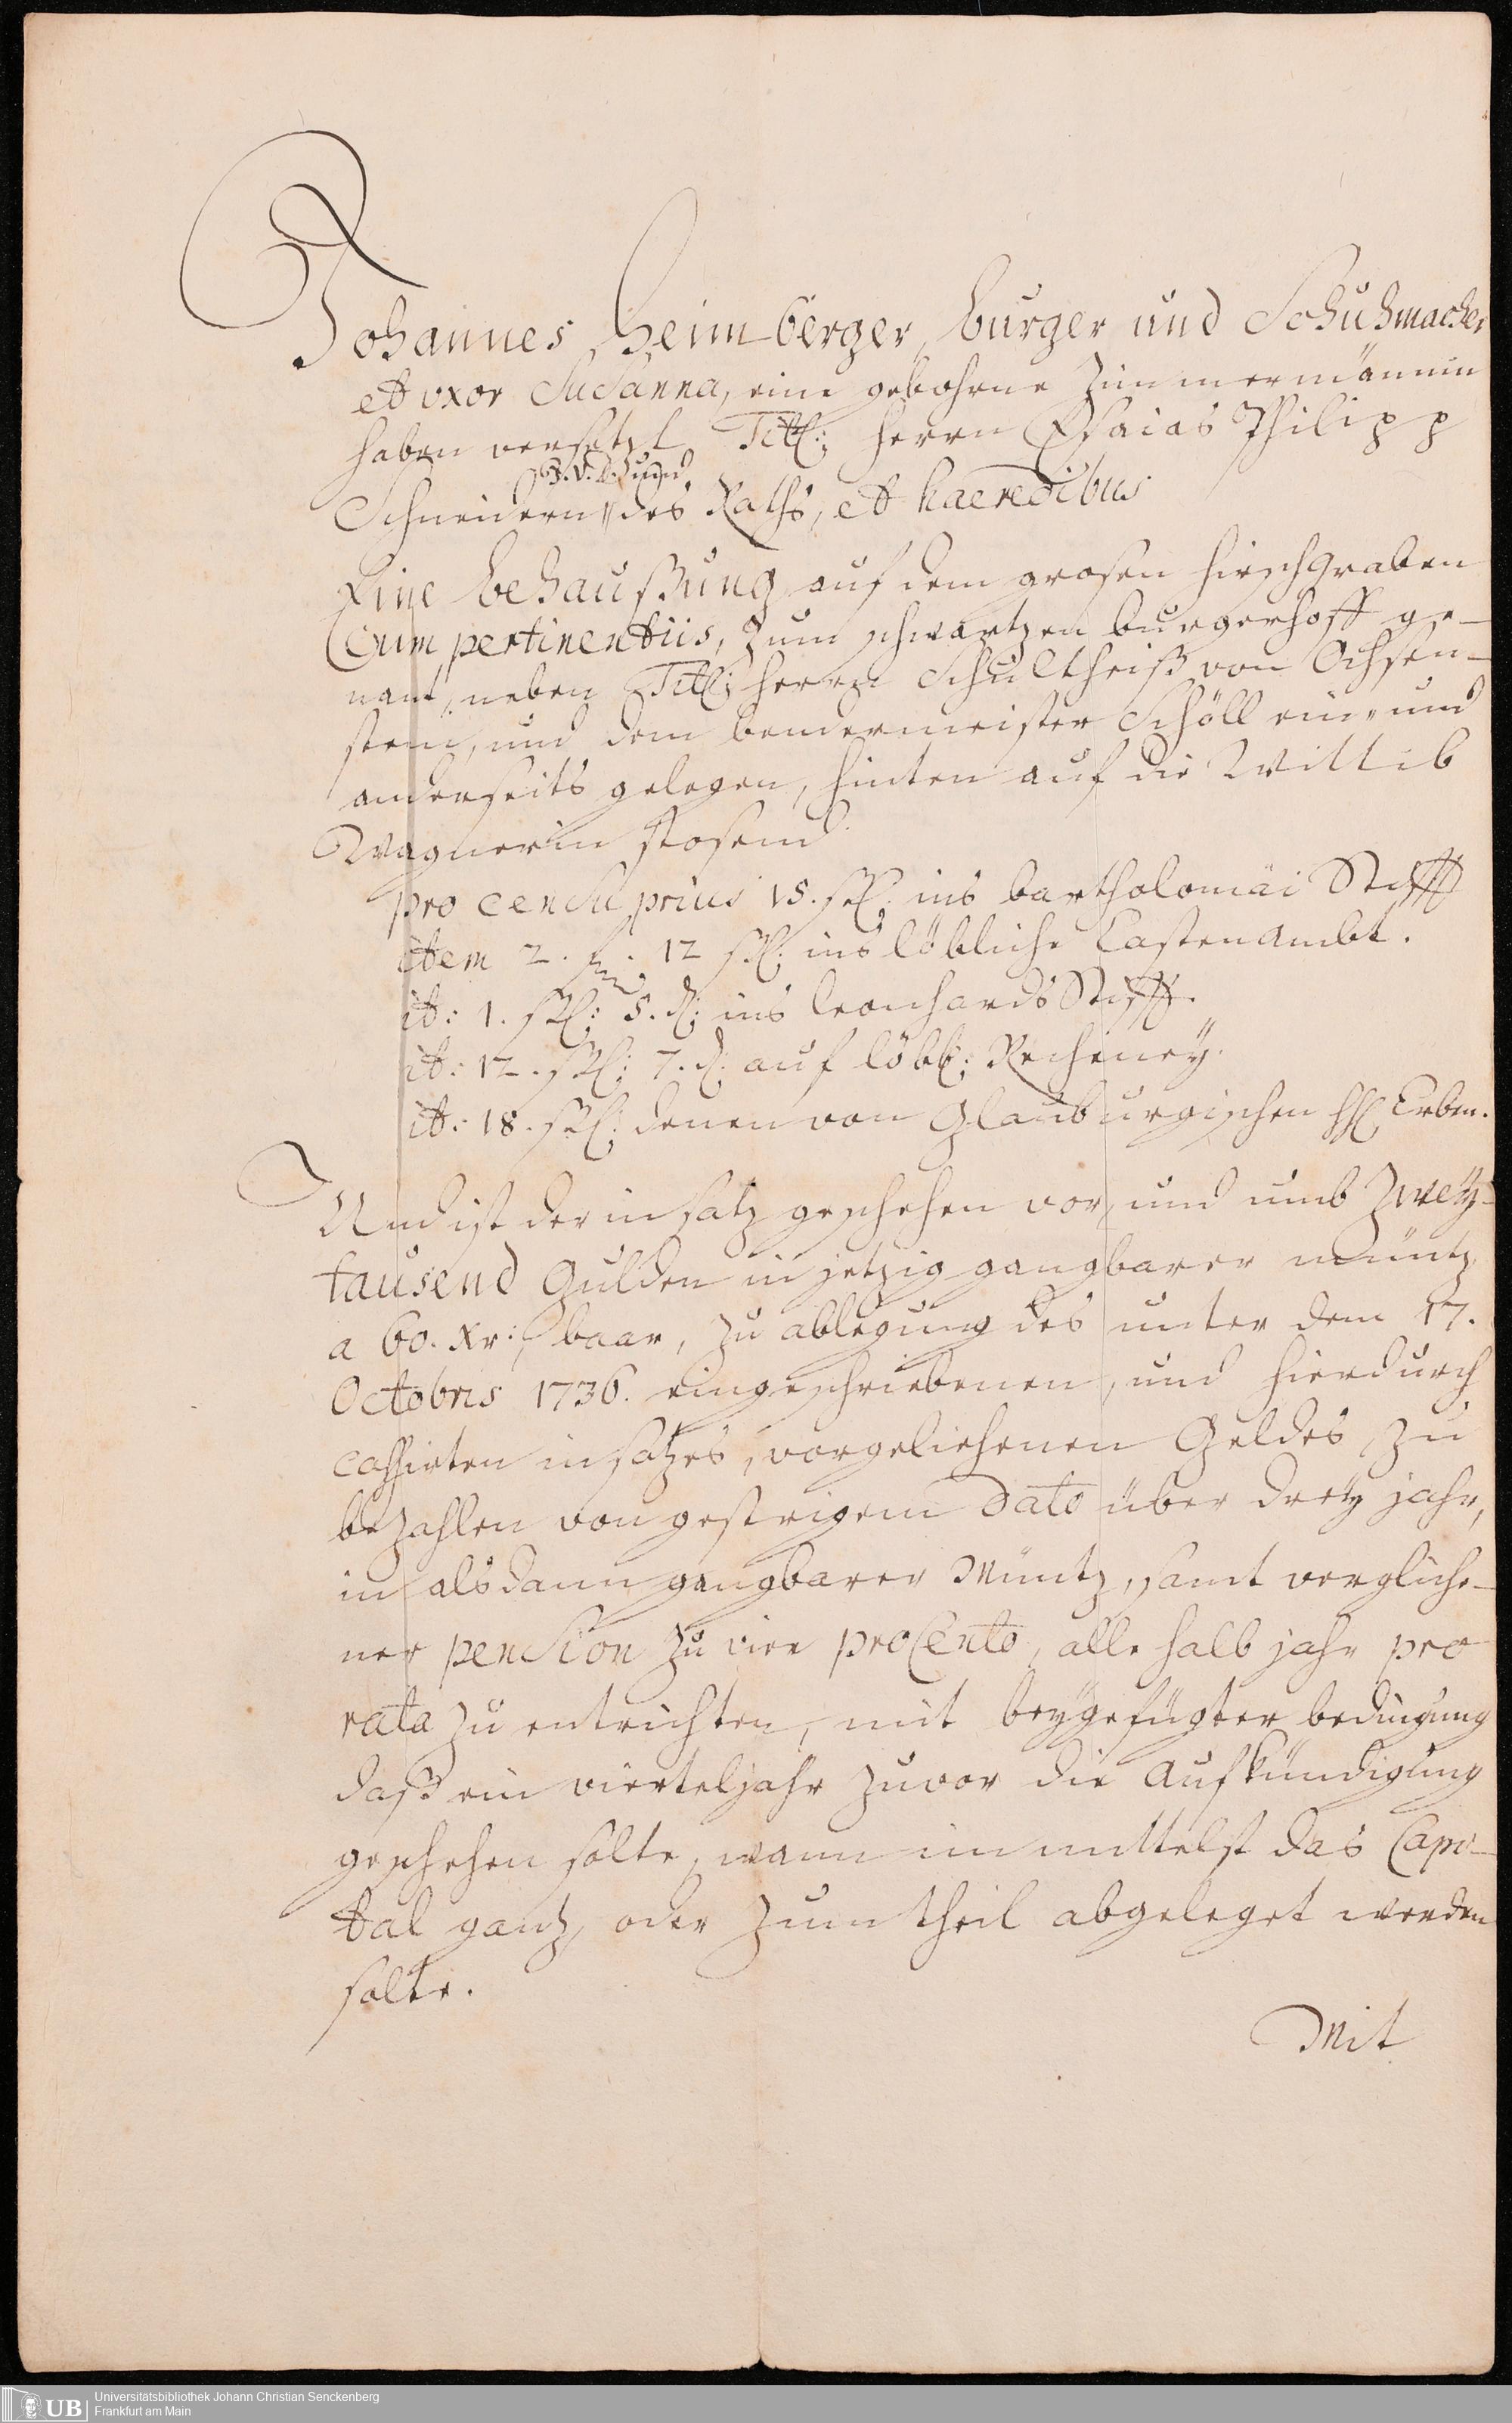 Johannes Heimberger, burger und Schuhmacher
et uxor Susanna, eine gebohrne Zimmermännin
haben versetzt Titl: Herrn Esaias Philipp
Schneidern des Raths, et haeredibus
Eine behaußung auf dem grosen Hirschgraben
cum pertinentiis, zum schwartzen burgerhoff ge-
nant, neben Titl: Herrn Schultheiß von Ochsen-
stein, und dem bendermeister Schöll ein- und
anderseits gelegen, hinten auf die Wittib
Wagnerin stosend
pro censu prius 15. ßl: ins bartholomäi Stifft
item 2. 12 ßl: ins löbliche Castenambt.
it: 1. ßl: 5. d: ins leonhards Stifft.
it: 12. ßl: 7. d: auf löbl: Recheney.
it: 18. ßl: denen von Glauburgischen Erben.
Und ist der insatz geschehen vor, und umb Zwey-
tausend Gulden in jetzig gangbarer müntz,
a 60. xr: baar, zu ablegung des unter dem 17.
Octobris 1736. eingeschriebenen, und hierdurch
cassirten insatzes, vorgeliehenen Geldes, zu
bezahlen von gestrigem Dato über drey jahr,
in alsdann gangbarer Müntz, samt vergliche-
ner pension zu vier proCento, alle halb jahr pro
rata zu entrichten, mit beygefügter bedingung
daß ein vierteljahr zuvor die Aufkündigung
geschehen solte, wann immittelst das Capi-
tal gantz, oder zum theil abgeleget werden
solte.
Mit
UB
Universitätsbibliothek Johann Christian Senckenberg
Frankfurt am Main